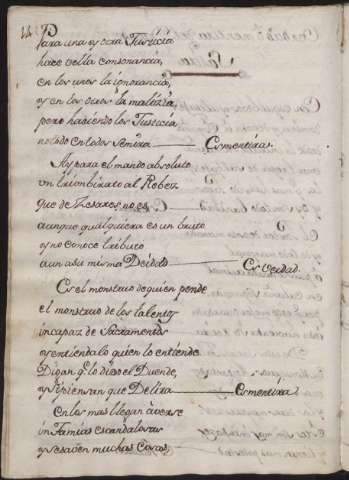 Para una y otra Justicia
hace vella consonancia,
en los unos la ignorancia,
y en los otros la malizia,
pero habiendo los Justicia
notado en todos Es mentira.
Ay para el mando absoluto
un triumbirato al Rebez
que de Zesares no es
aunque qualquiera es un bruto
y no conoce tributo
aun a su misma Deidad Es Verdad.
Es el monstruo de quien pende
el monstruo de los talentos
incapaz de Sacramentos
y entiendalo quien lo entiende
Digan q.e lo dice el Duende,
y si piensan que Delira Es mentira.
En los mas llegan a verse
infamias escandalosas
y se ven muchas Cosas